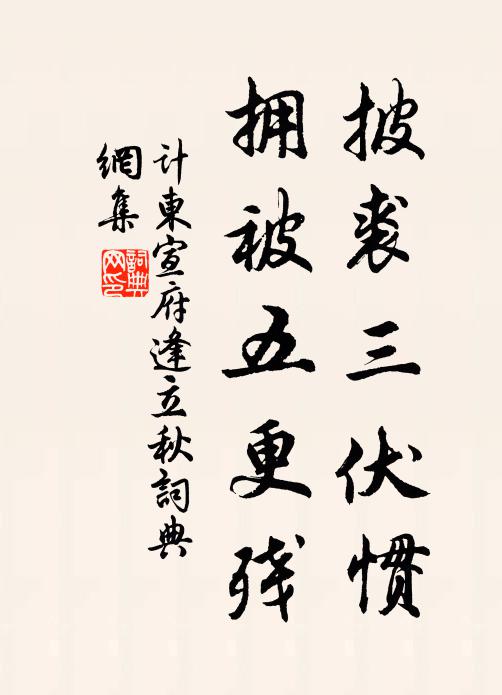 披裘三伏惯
拥被五更残
计東宣府逢立秋詞典
網集
詞典网印